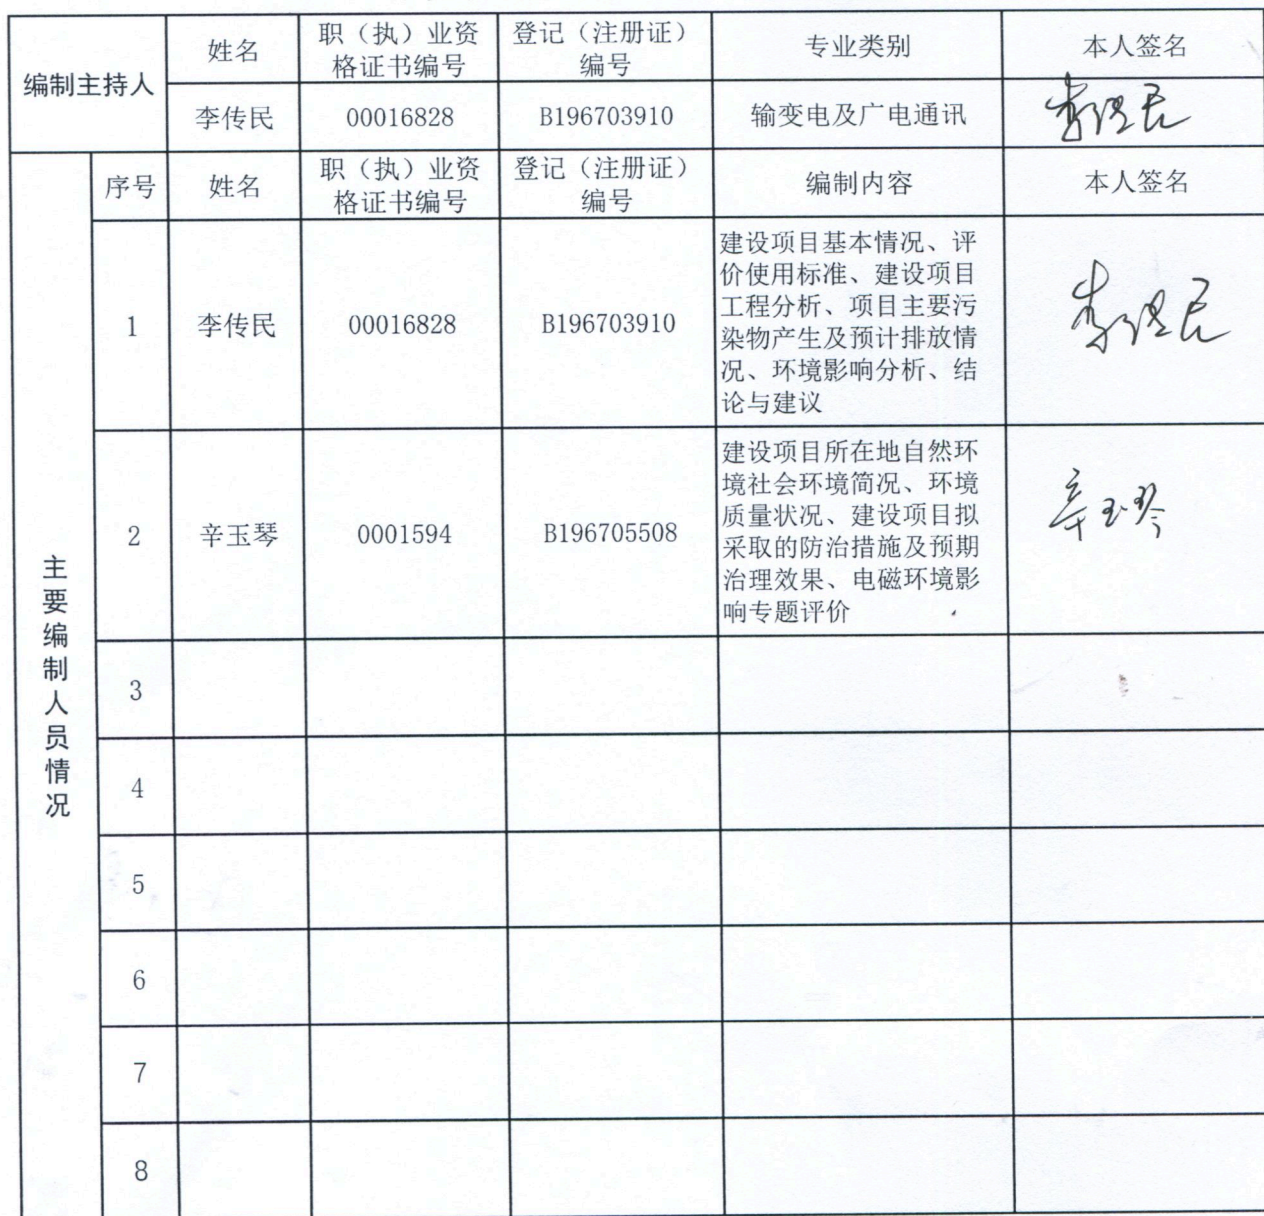 编制主持人
姓名
职（执）业资
格证书编号
登记（注册证）
编号
专业类别
本人签名
李传民
00016828
B196703910
输变电及广电通讯
李传民
主要编制人员情况
序号
姓名
职（执）业资
格证书编号
登记（注册证）
编号
编制内容
本人签名
1
李传民
00016828
B196703910
建设项目基本情况、评
价使用标准、建设项目
工程分析、项目主要污
染物产生及预计排放情
况、环境影响分析、结
论与建议
李传民
2
辛玉琴
0001594
B196705508
建设项目所在地自然环
境社会环境简况、环境
质量状况、建设项目拟
采取的防治措施及预期
治理效果、电磁环境影
响专题评价
辛玉琴
3
4
5
6
7
8